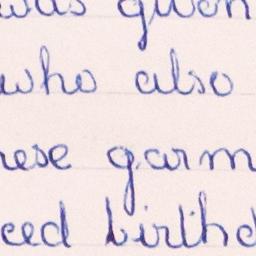 was given
who also
hese garm
ced birthd